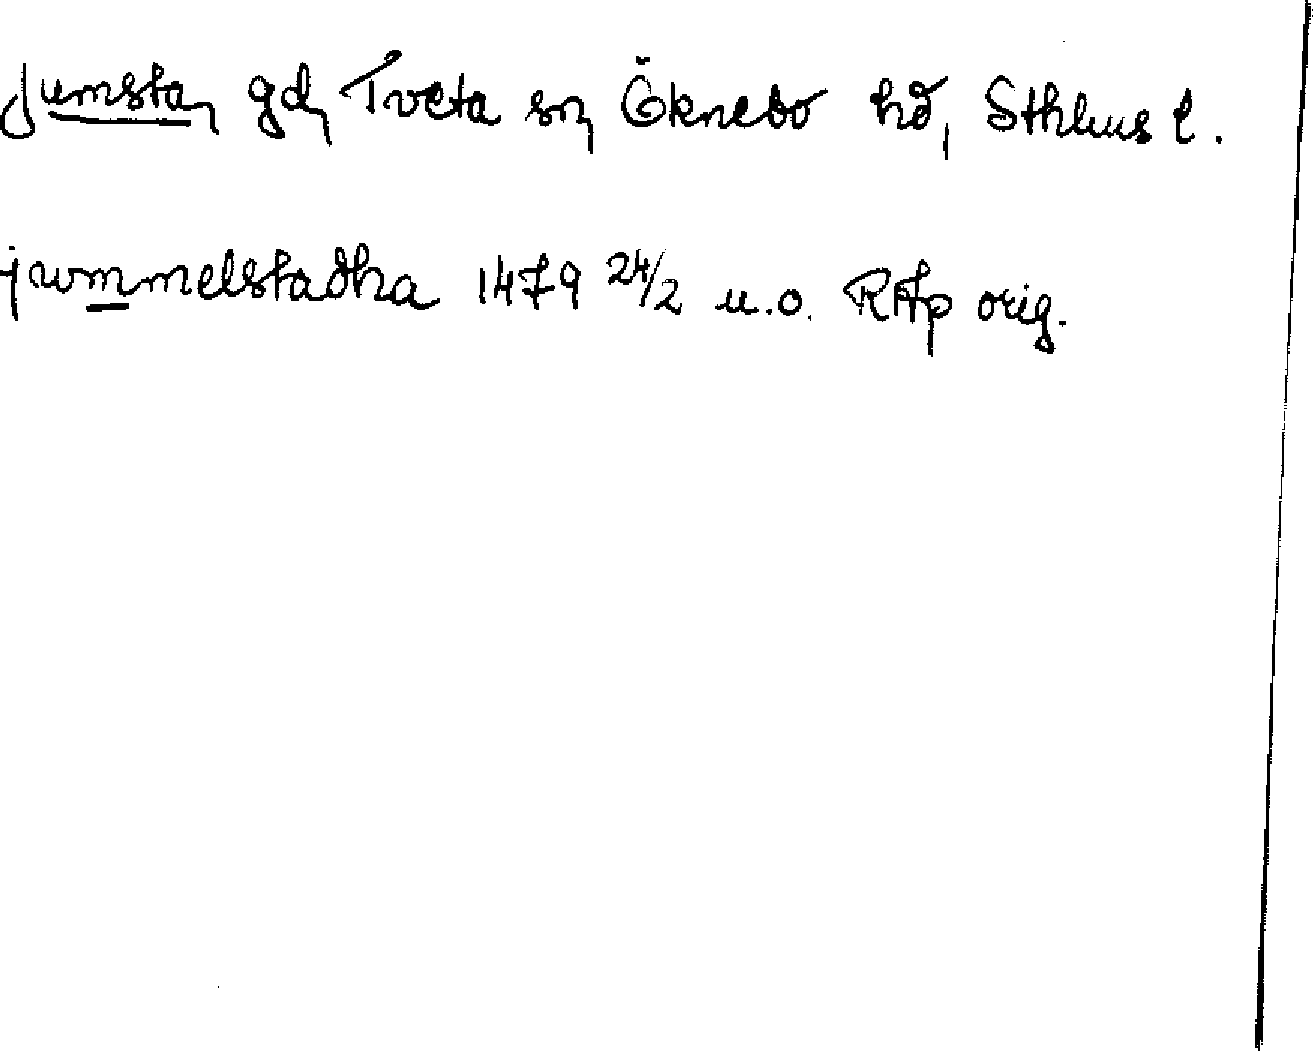 Jumsta, gd, Tveta sn, Öknebo hd, Sthlms l.
jwmmelstadha 1479 24/2 u.o. RAp orig.